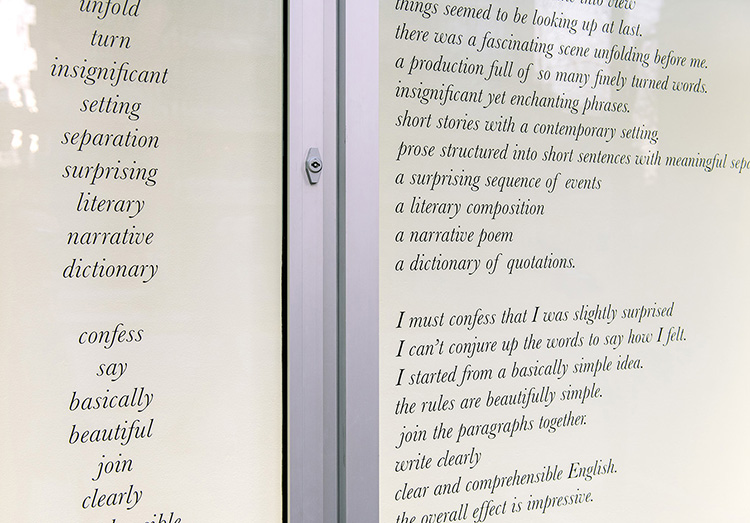 unfold
turn
insignificant
setting
separation
surprising
literary
narrative
dictionary
confess
say
basically
beautiful
join
clearly
into view
things seemed to be looking up at last.
there was a fascinating scene unfolding before me.
a production full of so many finely turned words.
insignificant yet enchanting phrases.
short stories with a contemporary setting
prose structured into short sentences with meaningful
a surprising sequence of events
a literary composition
a narrative poem
a dictionary of quotations.
I must confess that I was slightly surprised
I can't conjure up the words to say how I felt.
I started from a basically simple idea.
the rules are beautifully simple.
join the paragraphs together.
write clearly
clear and comprehensible English.
the overall effect is impressive.